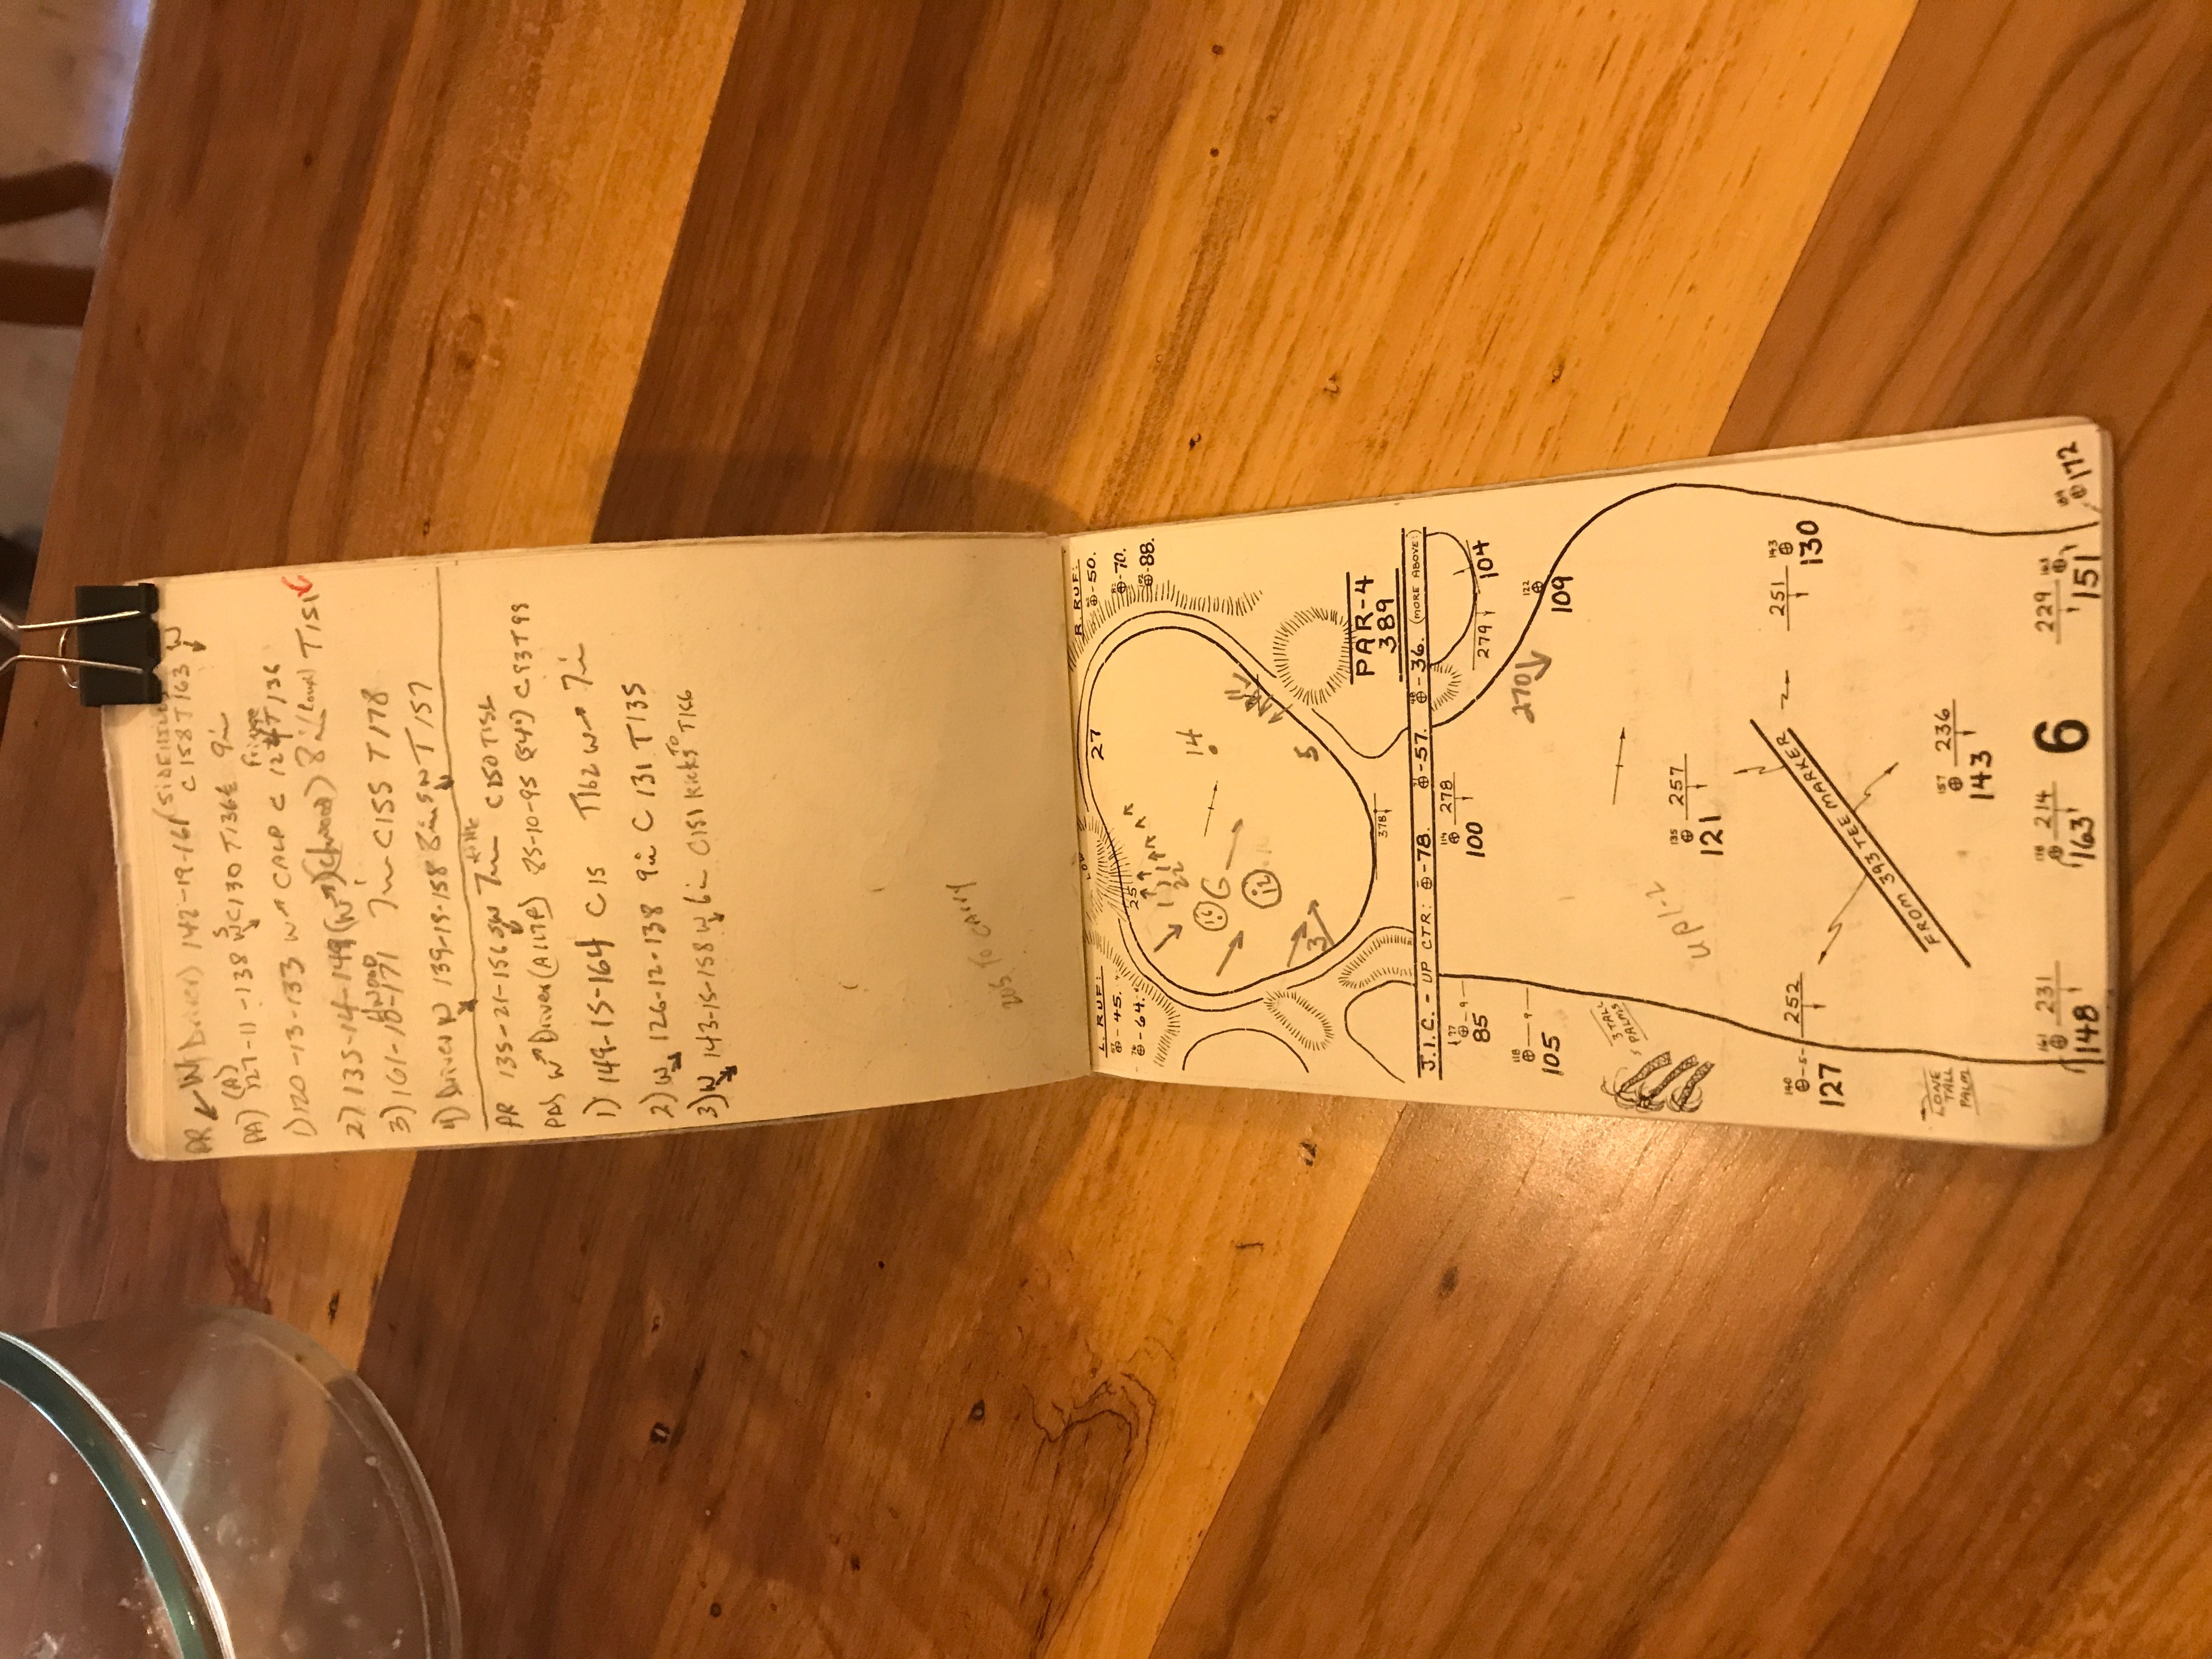 PR W Driver) 142-19-161 (SIDEHILL) C158 T163 W
PA) 127-11-138 W C130 T136 9i
1) 120-13-133 W CALP C 124 T136
Fringe
2) 135-14-149 (W) (4wood) 8i (Low) T151
3) 161-10-171 7i C155 T178
4) Driver W 139-19-158 8i T157
PR 135-21-156 7i C150 T152
PA) W Driver (A little) 85-10-95 (54°) C93 T99
1) 149-15-164 C15 T162 W 7i
2) W 126-12-138 9i C 131 T135
3) W 143-15-158 W 6i C151 kicks TO T166
205 to carry
L. RUF:
-45.
-64.
R. RUF:
-50.
-70.
-88.
LOW
27
25
14
5
12
G
3
378
PAR-4
389
J.I.C.- UP CTR: ⊕-78. ⊕-57. ⊕-36. (MORE ABOVE:)
⊕ 9
85
278
100
279
104
118 ⊕ 9
105
122 ⊕
109
270
3 TALL PALMS
UP 1-2
135 ⊕ 257
121
140 ⊕ 5 252
127
251 143 ⊕
130
FROM 393 TEE MARKER
157 ⊕ 236
143
LONE TALL PALM
161 ⊕ 231
148
⊕ 214
163
6
229 163 ⊕
151
⊕ 172